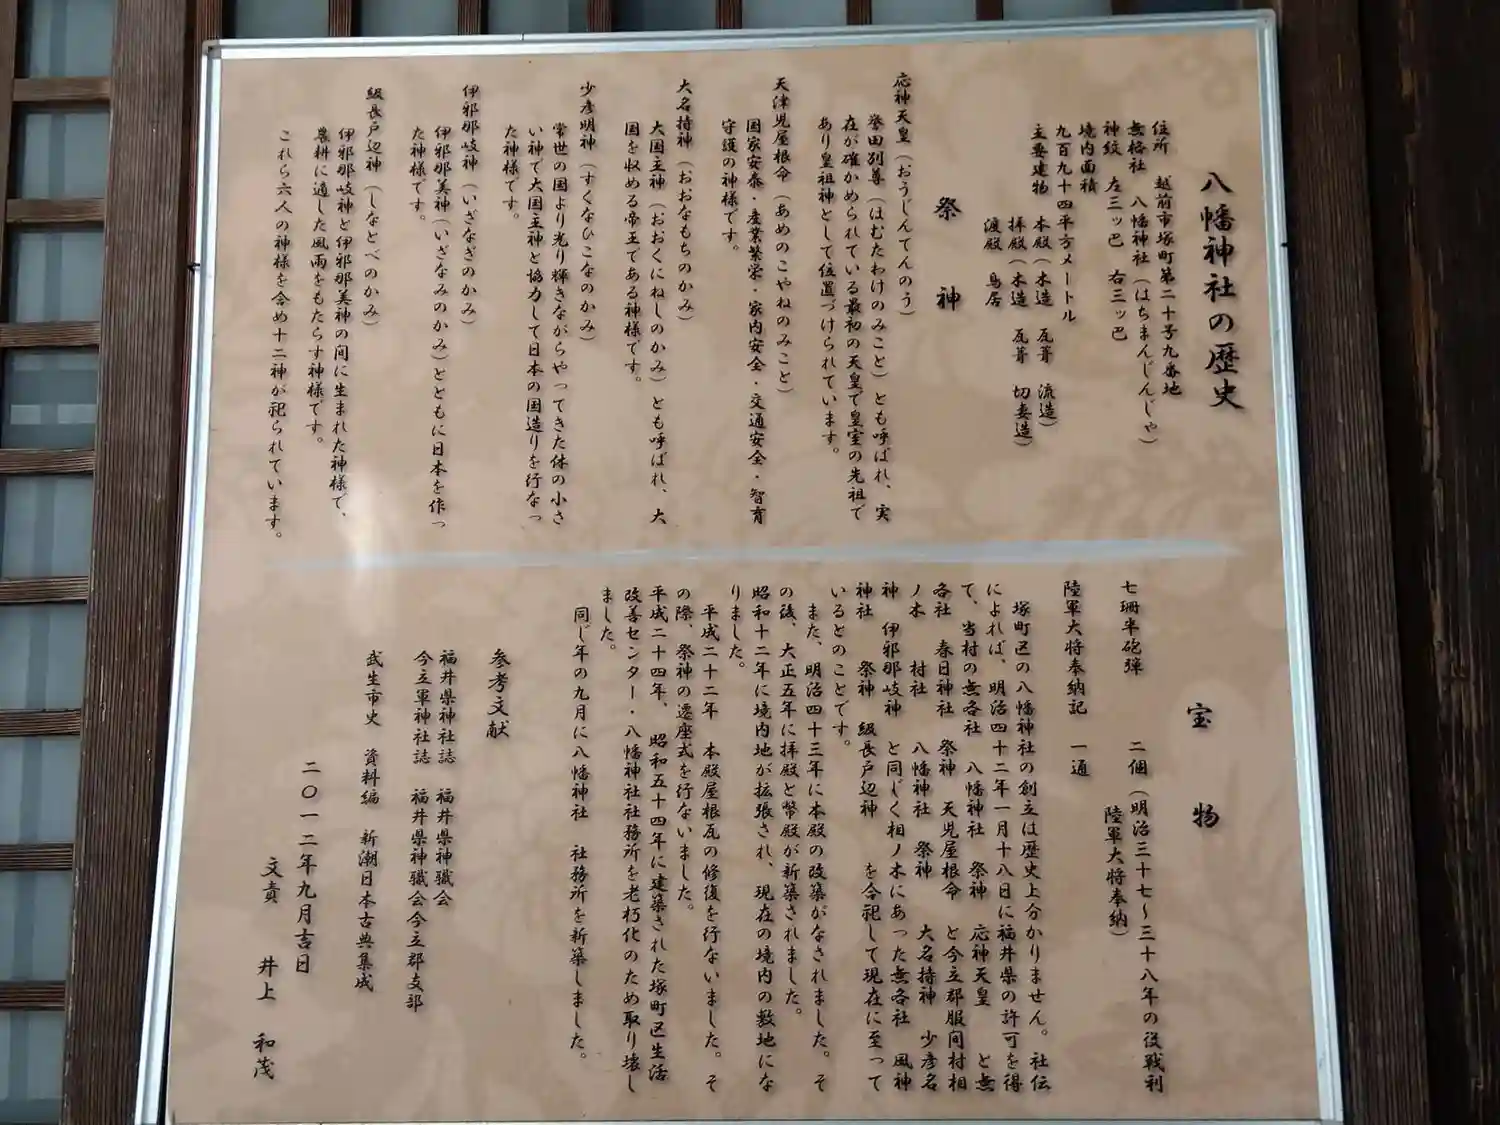 八幡神社の歴史
住所　越前市塚町第二十号九番地
無格社　八幡神社（はちまんじんじゃ）
神紋　左三ッ巴　右三ッ巴
境内面積
九百九十四平方メートル
主要建物　本殿（木造　瓦葺　流造）
拝殿（木造　瓦葺　切妻造）
渡殿　鳥居
祭神
応神天皇（おうじんてんのう）
誉田別尊（はむたわけのみこと）とも呼ばれ、実
在が確かめられている最初の天皇で皇室の先祖で
あり皇祖神として位置づけられています。
天津児屋根命（あめのこやねのみこと）
国家安泰・産業繁栄・家内安全・交通安全・智育
守護の神様です。
大名持神（おおなもちのかみ）
大国主神（おおくにねしのかみ）とも呼ばれ、大
国を収める帝王である神様です。
少彦明神（すくなひこなのかみ）
常世の国より光り輝きながらやってきた体の小さ
い神で大国主神と協力して日本の国造りを行なっ
た神様です。
伊邪那岐神（いざなぎのかみ）
伊邪那美神（いざなみのかみ）とともに日本を作っ
た神様です。
級長戸辺神（しなとべのかみ）
伊邪那岐神と伊邪那美神の間に生まれた神様で、
農耕に適した風雨をもたらす神様です。
これら六人の神様を含め十二神が祀られています。
宝物
七珊半砲弾　二個（明治三十七～三十八年の役戦利
陸軍大将奉納）
陸軍大将奉納記　一通
塚町区の八幡神社の創立は歴史上分かりません。社伝
によれば、明治四十二年一月十八日に福井県の許可を得
て、当村の無各社　八幡神社　祭神　応神天皇　と無
各社　春日神社　祭神　天児屋根命　と今立郡服間村相
ノ木　村社　八幡神社　祭神　大名持神　少彦名
神　伊邪那岐神　と同じく相ノ木にあった無各社　風神
神社　祭神　級長戸辺神　を合祀して現在に至って
いるとのことです。
また、明治四十三年に本殿の改築がなされました。そ
の後、大正五年に拝殿と幣殿が新築されました。
昭和十二年に境内地が拡張され、現在の境内の敷地にな
りました。
平成二十二年　本殿屋根瓦の修復を行ないました。そ
の際、祭神の遷座式を行ないました。
平成二十四年、昭和五十四年に建築された塚町区生活
改善センター・八幡神社社務所を老朽化のため取り壊し
ました。
同じ年の九月に八幡神社　社務所を新築しました。
参考文献
福井県神社誌　福井県神職会
今立軍神社誌　福井県神職会今立郡支部
武生市史　資料編　新潮日本古典集成
二〇一二年九月吉日
文責　井上　和茂